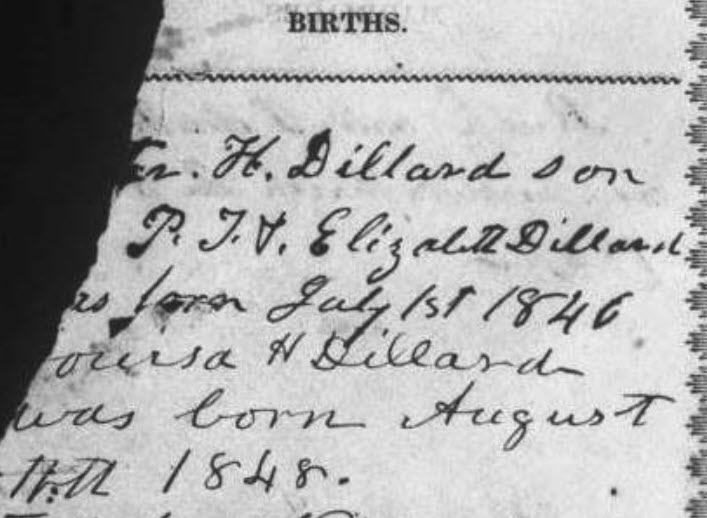 BIRTHS.
H. Dillard son
P. T. & Elizabeth Dillard
born July 1st 1846
ouisa H Dillard
was born August
1848.